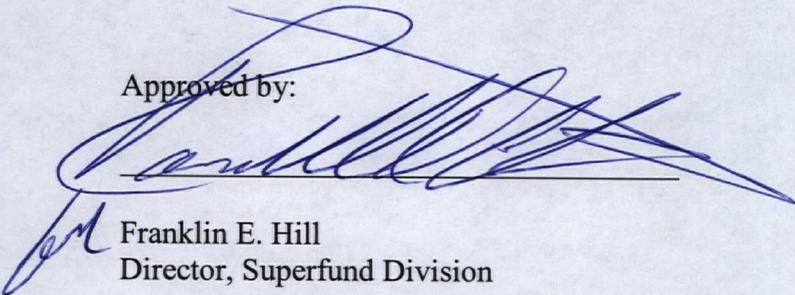 Approved by:
for Franklin E. Hill
Director, Superfund Division